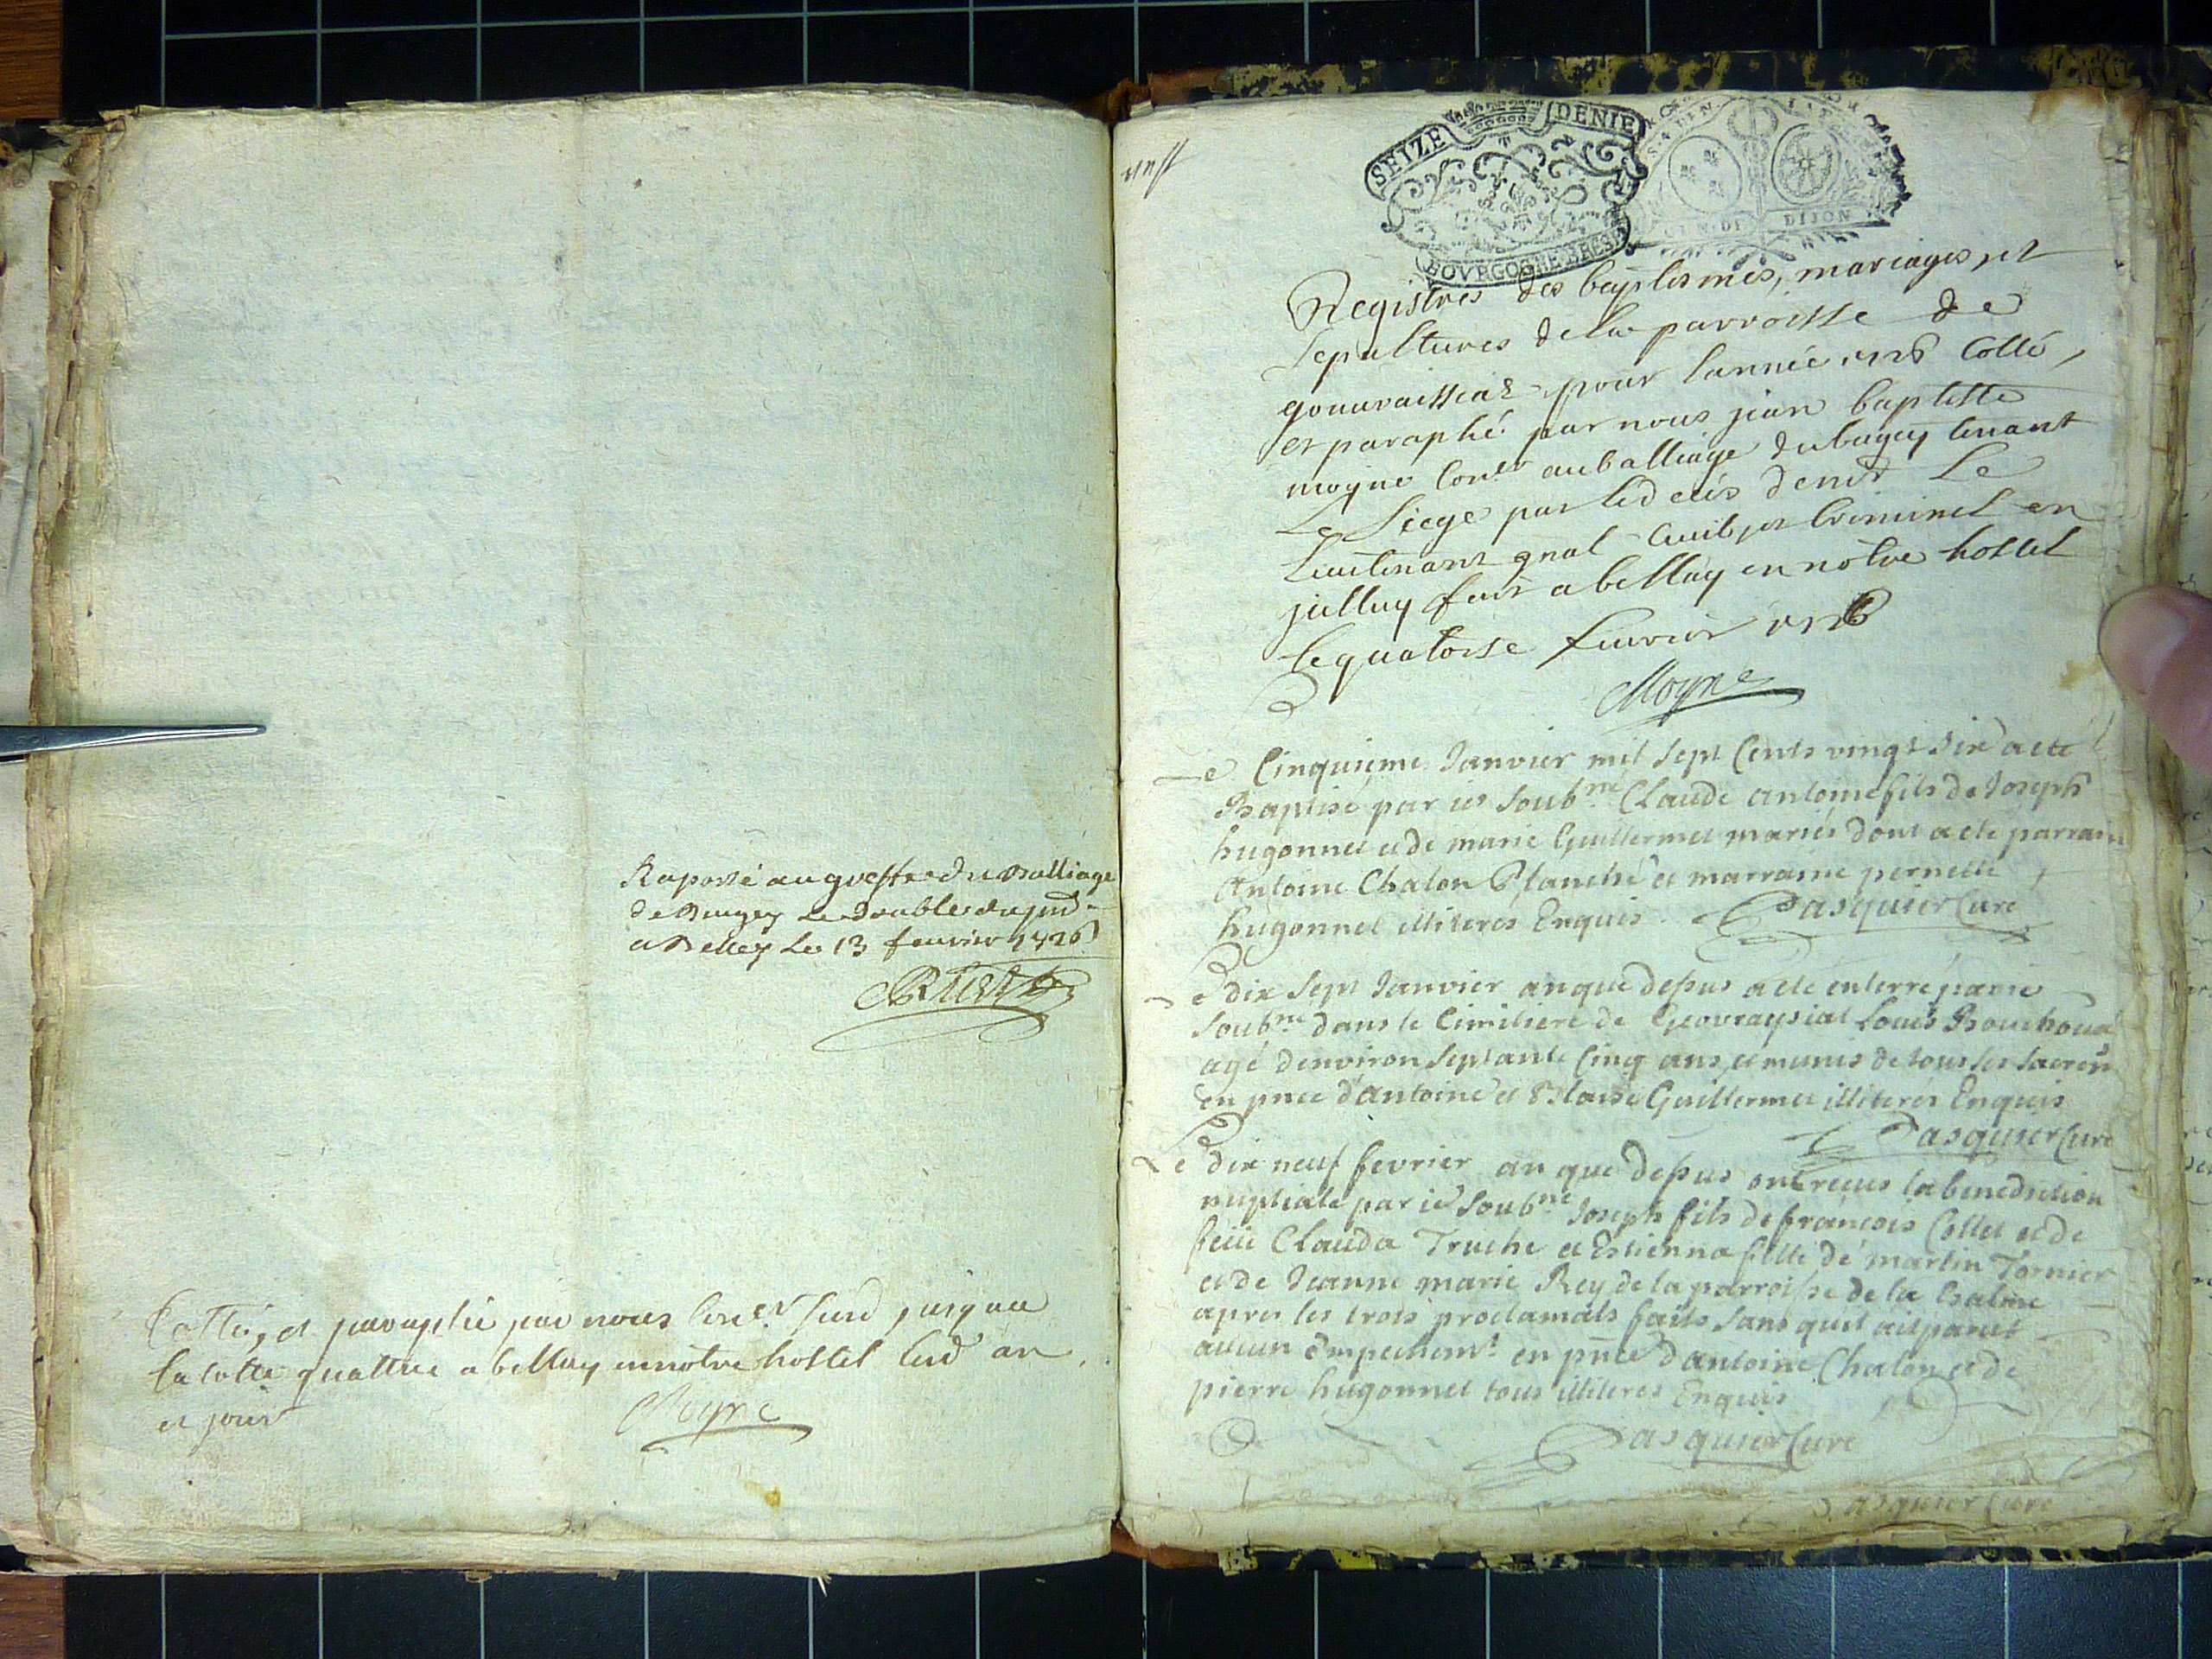 Raporté au greffe du Balliage
de Bugey Le double du pnt
a Belley Le 13 feuvrier 1726
Cotté, et paraphé par nous Coner susd jusqu au
la cotte quattre a bellay en nôtre hostel lesd an
et jour
Moyne
SEIZE DENIE
BOVRGOGNE BRESSE
GEN DE DIJON
Registres des baptesmes, mariages, et
sepultures de la parroisse de
gouvraissiat pour lannée 1726 Cotté,
et paraphé par nous jean baptiste
moyne Coner au balliage du bugey tenant
Le Siege par le deces de mr Le
Lieutenant gnal Civil, et Criminel en
jelluy fait a bellay en nôtre hostel
le quatorse feuvrier 1726
Moyne
Le Cinquieme Janvier mil sept Cents vingt six a ete
Baptisé par ie soubné Claude antoine fils de Joseph
hugonnet et de marie Guillermet mariés dont a ete parrain
Antoine Chalon Planché et marraine pernette
hugonnet illiterés Enquis Pasquier Curé
Le dix sept Janvier an que dessus a ete enterré par ie
soubné dans le Cimitiere de Geovraysiat Louis
agé d'environ septante Cinq ans, et munis de tous ses sacrem
en pnce d'antoine et Blaise Guillermet illiterés Enquis
Pasquier Curé
Le dix neuf fevrier an que dessus ont recus la benediction
nuptiale par ie soubné Joseph fils de françois Collet et de
feüe Clauda Truche et Estienna fille de martin Tornier
et de Jeanne marie Rey de la parroisse de la balme
apres les trois proclamats faits sans quil ait parut
aucun empechemt en pnce d'antoine Chalon et de
pierre hugonnet tous illiteres Enquis
Pasquier Curé
Pasquier Curé